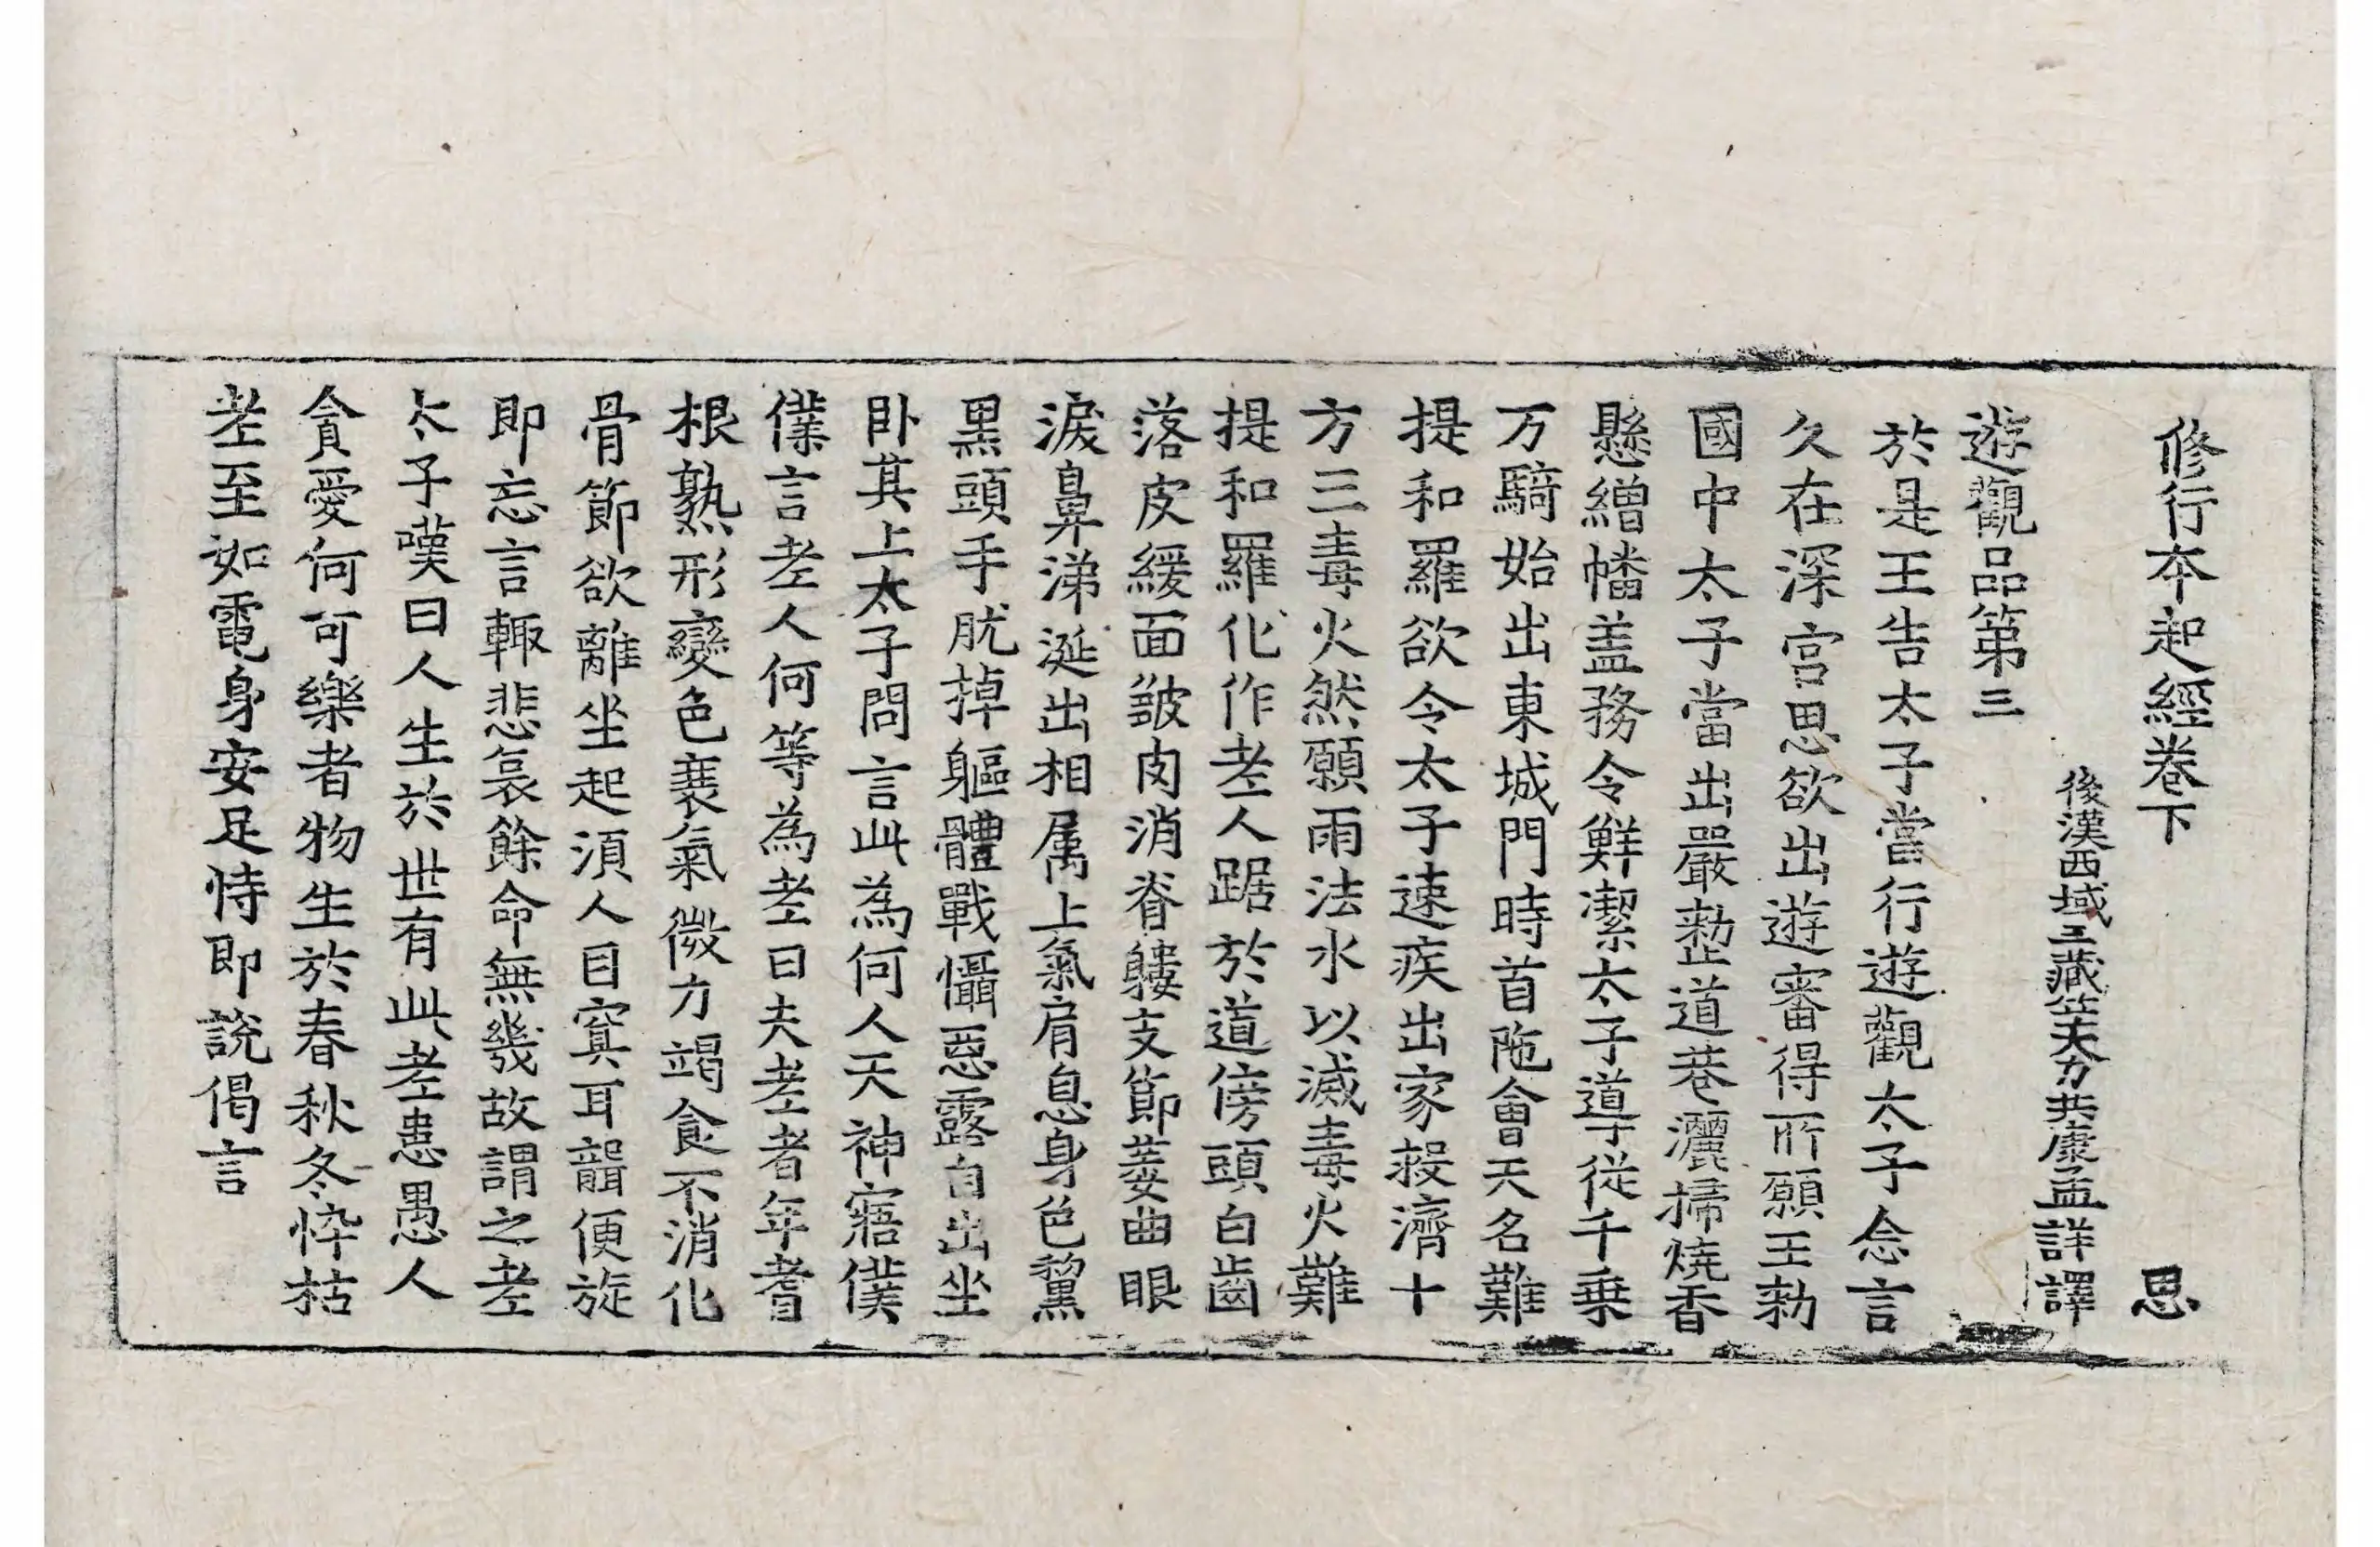 修行本起經卷下 思
後漢西域三藏竺大力共康孟詳譯
遊觀品第三
於是王告太子當行遊觀太子念言
久在深宮思欲出遊審得所願王勑
國中太子當出嚴整道巷灑掃燒香
懸繒幡蓋務令鮮潔太子導從千乗
万騎始出東城門時首陁會天名難
提和羅欲令太子速疾出家救濟十
方三毒火然願雨法水以滅毒火難
提和羅化作老人踞於道傍頭白齒
落皮緩面皺肉消脊僂支節萎曲眼
淚鼻涕涎出相属上氣肩息身色黧
黒頭手肬掉軀體戰懾惡露自出坐
卧其上太子問言此為何人天神寤僕
僕言老人何等為老曰夫老者年耆
根熟形變色衰氣微力竭食不消化
骨節欲離坐起湏人目冥耳聾便旋
即忘言輙悲哀餘命無幾故謂之老
太子嘆曰人生於世有此老患愚人
貪愛何可樂者物生於春秋冬悴枯
老至如電身安足恃即說偈言